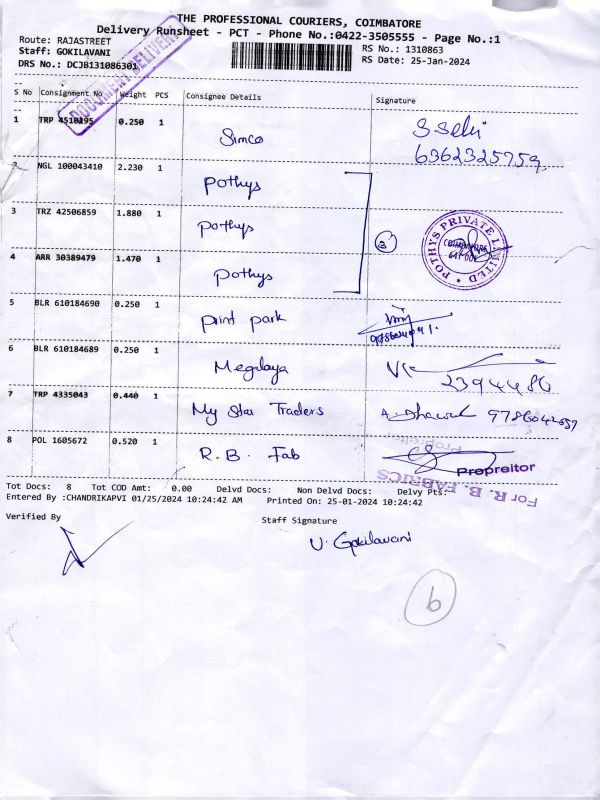 THE PROFESSIONAL COURIERS, COIMBATORE
Delivery Runsheet - PCT - Phone No.:0422-3505555 - Page No.:1
Route: RAJASTREET
RS No.: 1310863
Staff: GOKILAVANI
RS Date: 25-Jan-2024
DRS No.: DCJB131086301
DOCUMENT DELIVERY
S No Consignment No Weight PCS Consignee Details Signature
1 TRP 4510295 0.250 1 Simco S Selvi
6362325759
2 NGL 100043410 2.230 1 Pothys
3 TRZ 42506859 1.880 1 Pothys 3
POTHYS PRIVATE LIMITED
COIMBATORE
641 001
4 ARR 30389479 1.470 1 Pothys
5 BLR 610184690 0.250 1 Print park
6 BLR 610184689 0.250 1 Megalaya
2394486
7 TRP 4335043 0.440 1 My Star Traders
8 POL 1605672 0.520 1 R. B. Fab
Propreitor
Propreitor
For R. B. FABRICS
Tot Docs: 8 Tot COD Amt: 0.00 Delvd Docs: Non Delvd Docs: Delvy Pts:
Entered By :CHANDRIKAPVI 01/25/2024 10:24:42 AM Printed On: 25-01-2024 10:24:42
Verified By
Staff Signature
V. Gokilavani
6